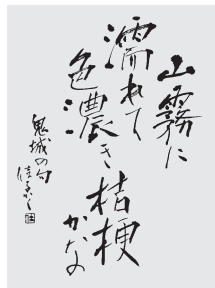 山霧に
濡れて
色濃き
桔梗
かな
鬼城の句
佳子かく